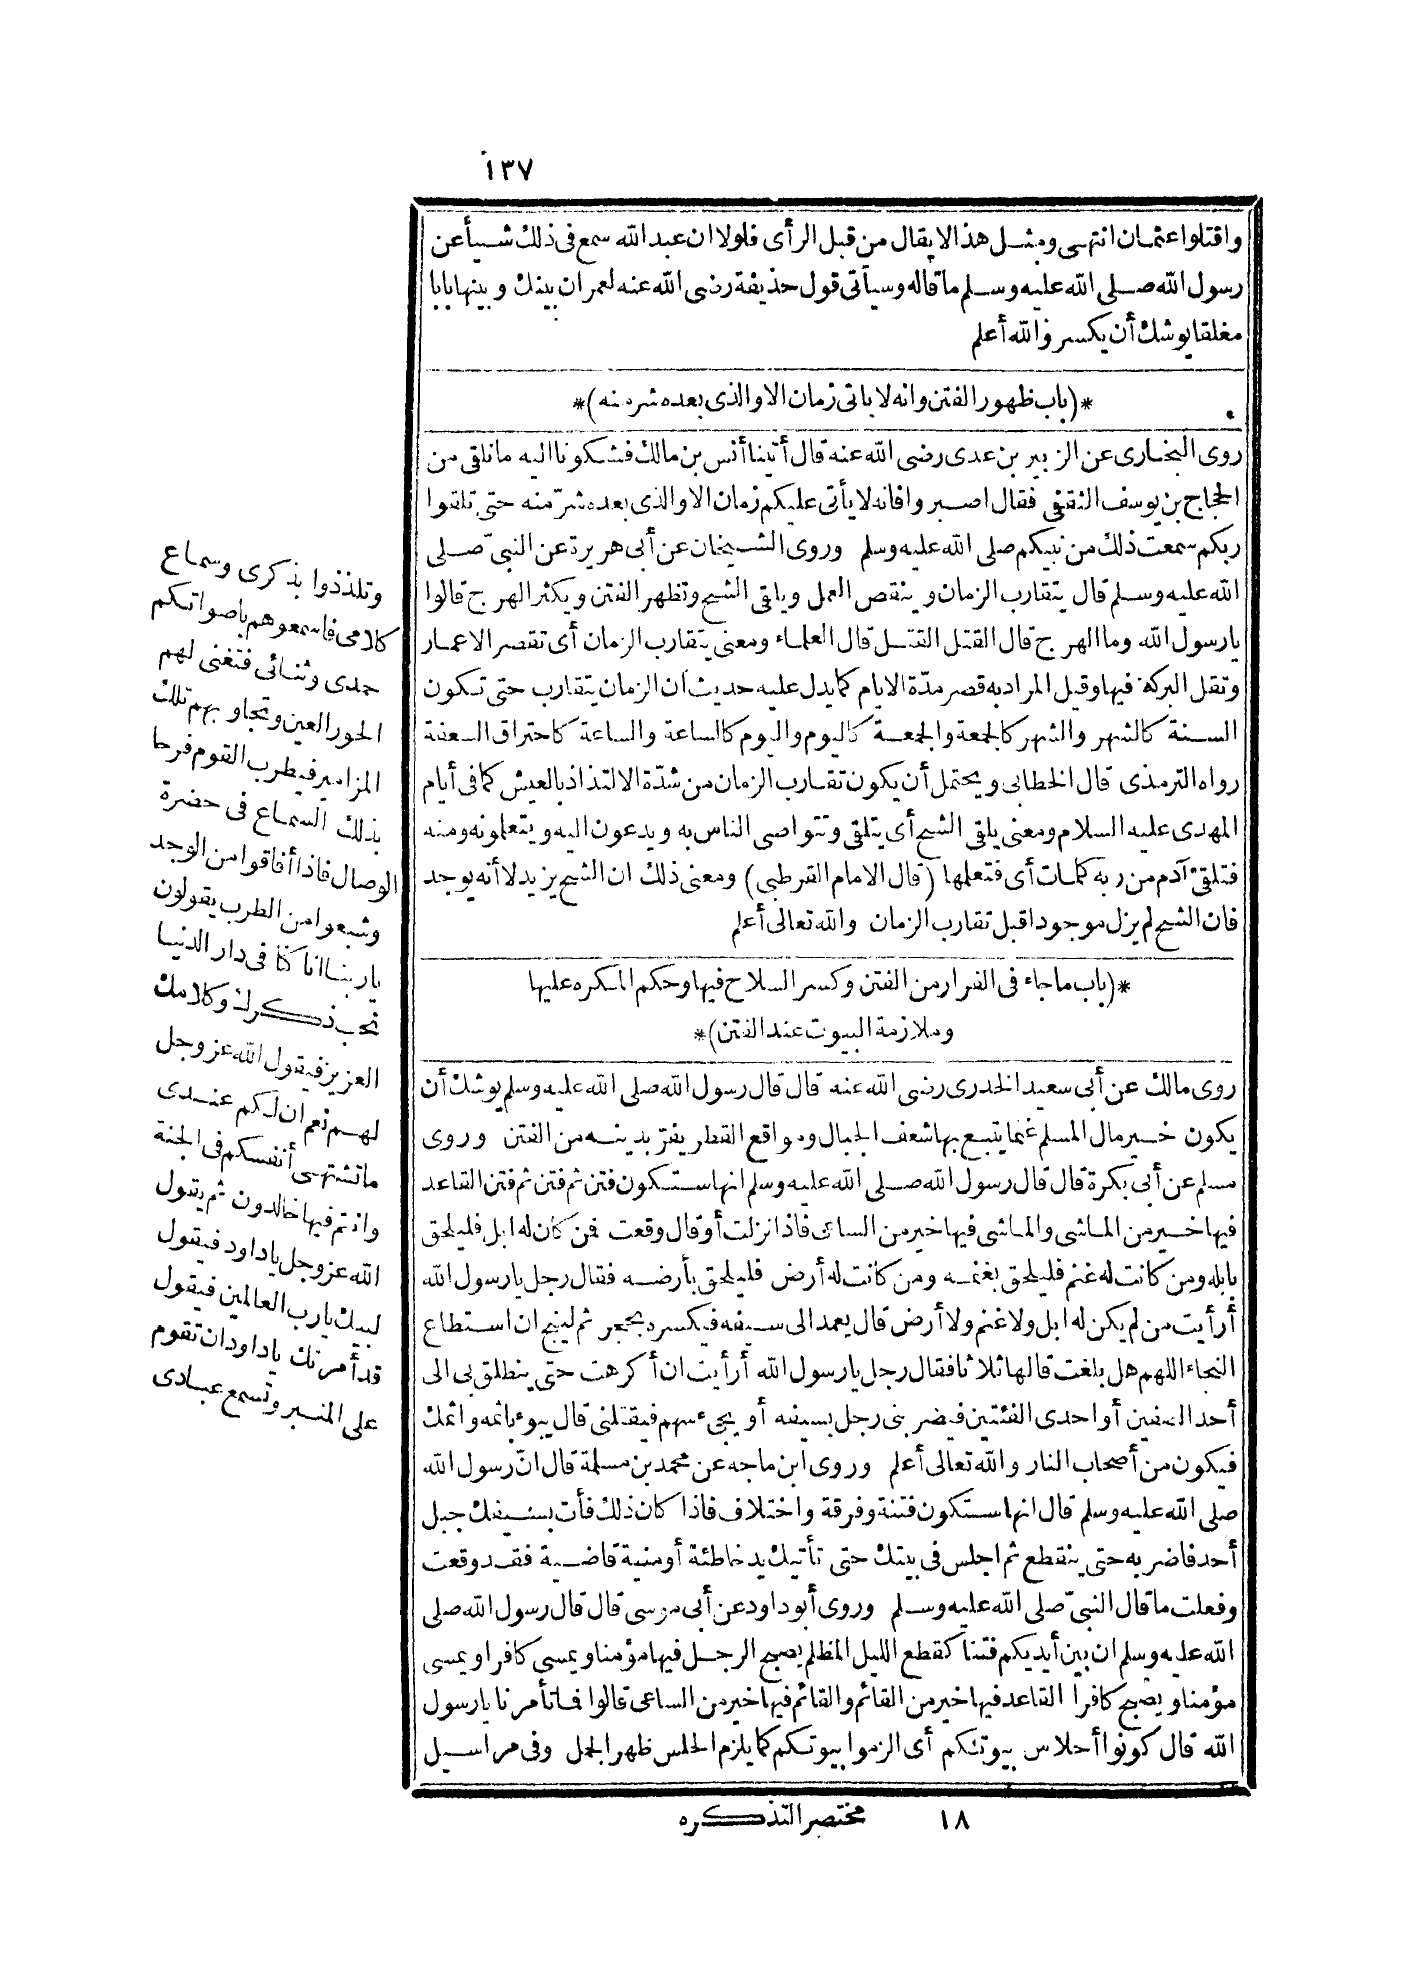 ١٣٧
واقتلوا عثمان انتهى ومثل هذا لا يقال من قبل الرأى فلولا ان عبد الله سمع فى ذلك شيأ عن
رسول الله صلى الله عليه وسلم ما قاله وسيأتى قول حذيفة رضى الله عنه لعمر ان بينك وبينها بابا
مغلقا يوشك أن يكسر والله أعلم
*(باب ظهور الفتن وانه لا ياتى زمان الا والذى بعده شر منه)*
روى البخارى عن الزبير بن عدى رضى الله عنه قال أتينا أنس بن مالك فشكونا اليه ما نلقى من
الحجاج بن يوسف الثقفى فقال اصبر وا فانه لا يأتى عليكم زمان الا والذى بعده شرّ منه حتى تلقوا
ربكم سمعت ذلك من نبيكم صلى الله عليه وسلم وروى الشيخان عن أبى هريرة عن النبىّ صلى
الله عليه وسلم قال يتقارب الزمان وينقص العمل ويلقى الشح وتظهر الفتن ويكثر الهرج قالوا
يارسول الله وما الهرج قال القتل القتل قال العلماء ومعنى يتقارب الزمان أى تقصر الاعمار
وتقل البركة فيها وقيل المراد به قصر مدّة الايام كما يدل عليه حديث ان الزمان يتقارب حتى تكون
السنة كالشهر والشهر كالجمعة والجمعة كاليوم واليوم كالساعة والساعة كاحتراق السعفة
رواه الترمذى قال الخطابى ويحتمل أن يكون تقارب الزمان من شدّة الالتذاذ بالعيش كما فى أيام
المهدى عليه السلام ومعنى يلقى الشح أى يتلقى وتتواصى الناس به ويدعون اليه ويتعلمونه ومنه
فتلقى آدم من ربه كلمات أى فتعلمها (قال الامام القرطبى) ومعنى ذلك ان الشح يزيد لا أنه يوجد
فان الشح لم يزل موجودا قبل تقارب الزمان والله تعالى أعلم
*(باب ما جاء فى الفرار من الفتن وكسر السلاح فيها وحكم المكره عليها
وملازمة البيوت عند الفتن)*
روى مالك عن أبى سعيد الخدرى رضى الله عنه قال قال رسول الله صلى الله عليه وسلم يوشك أن
يكون خير مال المسلم غنما يتبع بها شعف الجبال ومواقع القطر يفرّ بدينه من الفتن وروى
مسلم عن أبى بكرة قال قال رسول الله صلى الله عليه وسلم انها ستكون فتن ثم فتن ثم فتن القاعد
فيها خير من الماشى والماشى فيها خير من الساعى فاذا نزلت أو قال وقعت فمن كان له ابل فليلحق
بابله ومن كانت له غنم فليلحق بغنمه ومن كانت له أرض فليلحق بأرضه فقال رجل يارسول الله
أرأيت من لم يكن له ابل ولا غنم ولا أرض قال يعمد الى سيفه فيكسره بحجر ثم لينج ان استطاع
النجاء اللهم هل بلغت قالها ثلاثا فقال رجل يارسول الله أرأيت ان أكرهت حتى ينطلق بى الى
أحد الصفين أو احدى الفئتين فيضربنى رجل بسيفه أو يجىء سهم فيقتلنى قال يبوء باثمه واثمك
فيكون من أصحاب النار والله تعالى أعلم وروى ابن ماجه عن محمد بن مسلمة قال انّ رسول الله
صلى الله عليه وسلم قال انها ستكون فتنة وفرقة واختلاف فاذا كان ذلك فأت بسيفك جبل
أحد فاضربه حتى ينقطع ثم اجلس فى بيتك حتى تأتيك يد خاطئة أو منية قاضية فقد وقعت
وفعلت ما قال النبىّ صلى الله عليه وسلم وروى أبو داود عن أبى موسى قال قال رسول الله صلى
الله عليه وسلم ان بين أيديكم فتنا كقطع الليل المظلم يصبح الرجل فيها مؤمنا ويمسى كافرا ويمسى
مؤمنا ويصبح كافرا القاعد فيها خير من القائم والقائم فيها خير من الساعى قالوا فما تأمرنا يارسول
الله قال كونوا أحلاس بيوتكم أى الزموا بيوتكم كما يلزم الحلس ظهر الجمل وفى مراسيل
وتلذذوا بذكرى وسماع
كلامى فاسمعوهم باصواتكم
حمدى وثنائى فتغنى لهم
الحور العين وتجاوبهم تلك
المزامير فيطرب القوم فرحا
بذلك السماع فى حضرة
الوصال فاذا أفاقوا من الوجد
وشبعوا من الطرب يقولون
ياربنا انا كنا فى دار الدنيا
نحب ذكرك وكلامك
العزيز فيقول الله عز وجل
لهم نعم ان لكم عندى
ما تشتهى أنفسكم فى الجنة
وانتم فيها خالدون ثم يقول
الله عز وجل ياداود فيقول
لبيك يارب العالمين فيقول
قد أمرتك ياداود ان تقوم
على المنبر وتسمع عبادى
١٨ مختصر التذكره